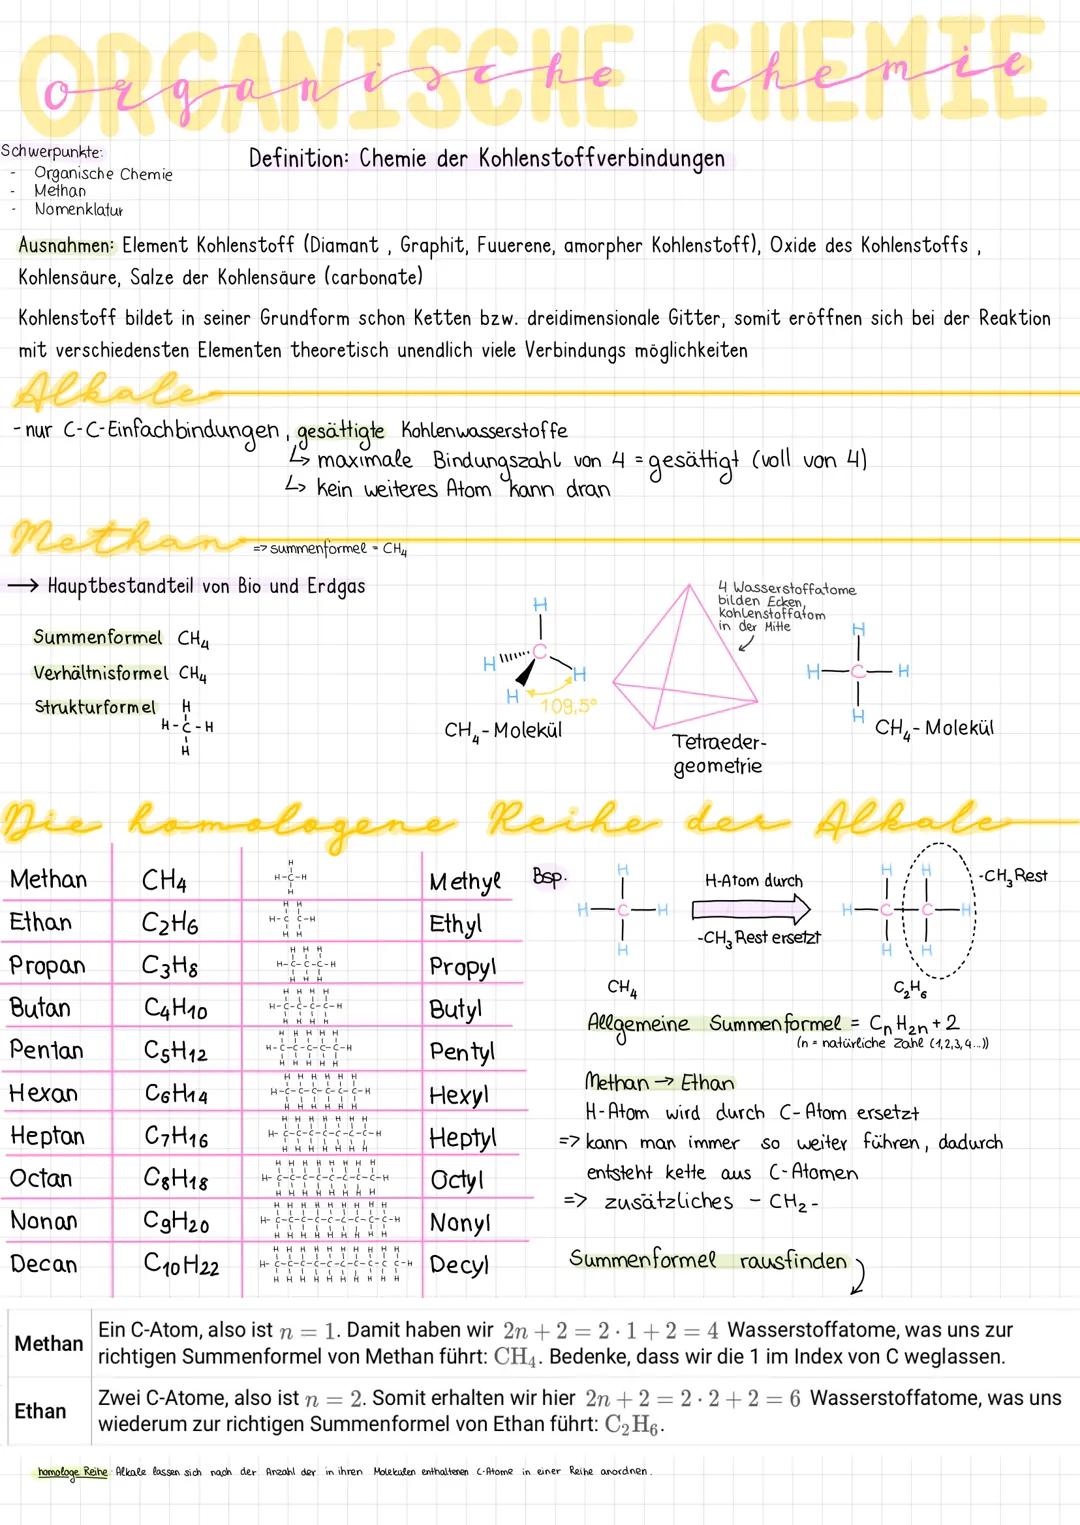 ORGANISCHE CHEMIE
organische chemie
Schwerpunkte:
- Organische Chemie
- Methan
- Nomenklatur
Definition: Chemie der Kohlenstoffverbindungen
Ausnahmen: Element Kohlenstoff (Diamant , Graphit, Fuuerene, amorpher Kohlenstoff), Oxide des Kohlenstoffs ,
Kohlensäure, Salze der Kohlensäure (carbonate)
Kohlenstoff bildet in seiner Grundform schon Ketten bzw. dreidimensionale Gitter, somit eröffnen sich bei der Reaktion
mit verschiedensten Elementen theoretisch unendlich viele Verbindungs möglichkeiten
Alkale
- nur C-C-Einfachbindungen, gesättigte Kohlenwasserstoffe
↳ maximale Bindungszahl von 4 = gesättigt (voll von 4)
↳ kein weiteres Atom kann dran
Methan => summenformel = CH4
→ Hauptbestandteil von Bio und Erdgas
Summenformel CH4
Verhältnisformel CH4
Strukturformel
H
H-C-H
H
H
C
H
H
H
109,5°
CH4-Molekül
4 Wasserstoffatome
bilden Ecken,
Kohlenstoffatom
in der Mitte
Tetraeder-
geometrie
H
H—C—H
H
CH4-Molekül
Die homologene Reihe der Alkale
Methan CH4 Methyl
H
H-C-H
H
Ethan C2H6 Ethyl
H H
H-C C-H
H H
Propan C3H8 Propyl
H H H
H-C-C-C-H
H H H
Butan C4H10 Butyl
H H H H
H-C-C-C-C-H
H H H H
Pentan C5H12 Pentyl
H H H H H
H-C-C-C-C-C-H
H H H H H
Hexan C6H14 Hexyl
H H H H H H
H-C-C-C-C-C-C-H
H H H H H H
Heptan C7H16 Heptyl
H H H H H H H
H-C-C-C-C-C-C-C-H
H H H H H H H
Octan C8H18 Octyl
H H H H H H H H
H-C-C-C-C-C-C-C-C-H
H H H H H H H H
Nonan C9H20 Nonyl
H H H H H H H H H
H-C-C-C-C-C-C-C-C-C-H
H H H H H H H H H
Decan C10H22 Decyl
H H H H H H H H H H
H-C-C-C-C-C-C-C-C-C C-H
H H H H H H H H H H
Bsp.
H
H—C—H
H
CH4
H-Atom durch
-CH3 Rest ersetzt
H H
H—C—C—H
H H
-CH3 Rest
C2H6
Allgemeine Summenformel = CnH2n+2
(n = natürliche Zahl (1,2,3,4...))
Methan → Ethan
H-Atom wird durch C-Atom ersetzt
=> kann man immer so weiter führen, dadurch
entsteht kette aus C-Atomen
=> zusätzliches - CH2-
Summenformel rausfinden
Methan
Ein C-Atom, also ist n = 1. Damit haben wir 2n + 2 = 2 · 1 + 2 = 4 Wasserstoffatome, was uns zur
richtigen Summenformel von Methan führt: CH4. Bedenke, dass wir die 1 im Index von C weglassen.
Ethan
Zwei C-Atome, also ist n = 2. Somit erhalten wir hier 2n + 2 = 2 · 2 + 2 = 6 Wasserstoffatome, was uns
wiederum zur richtigen Summenformel von Ethan führt: C2H6.
homologe Reihe: Alkale lassen sich nach der Anzahl der in ihren Molekulen enthaltenen C-Atome in einer Reihe anordnen.